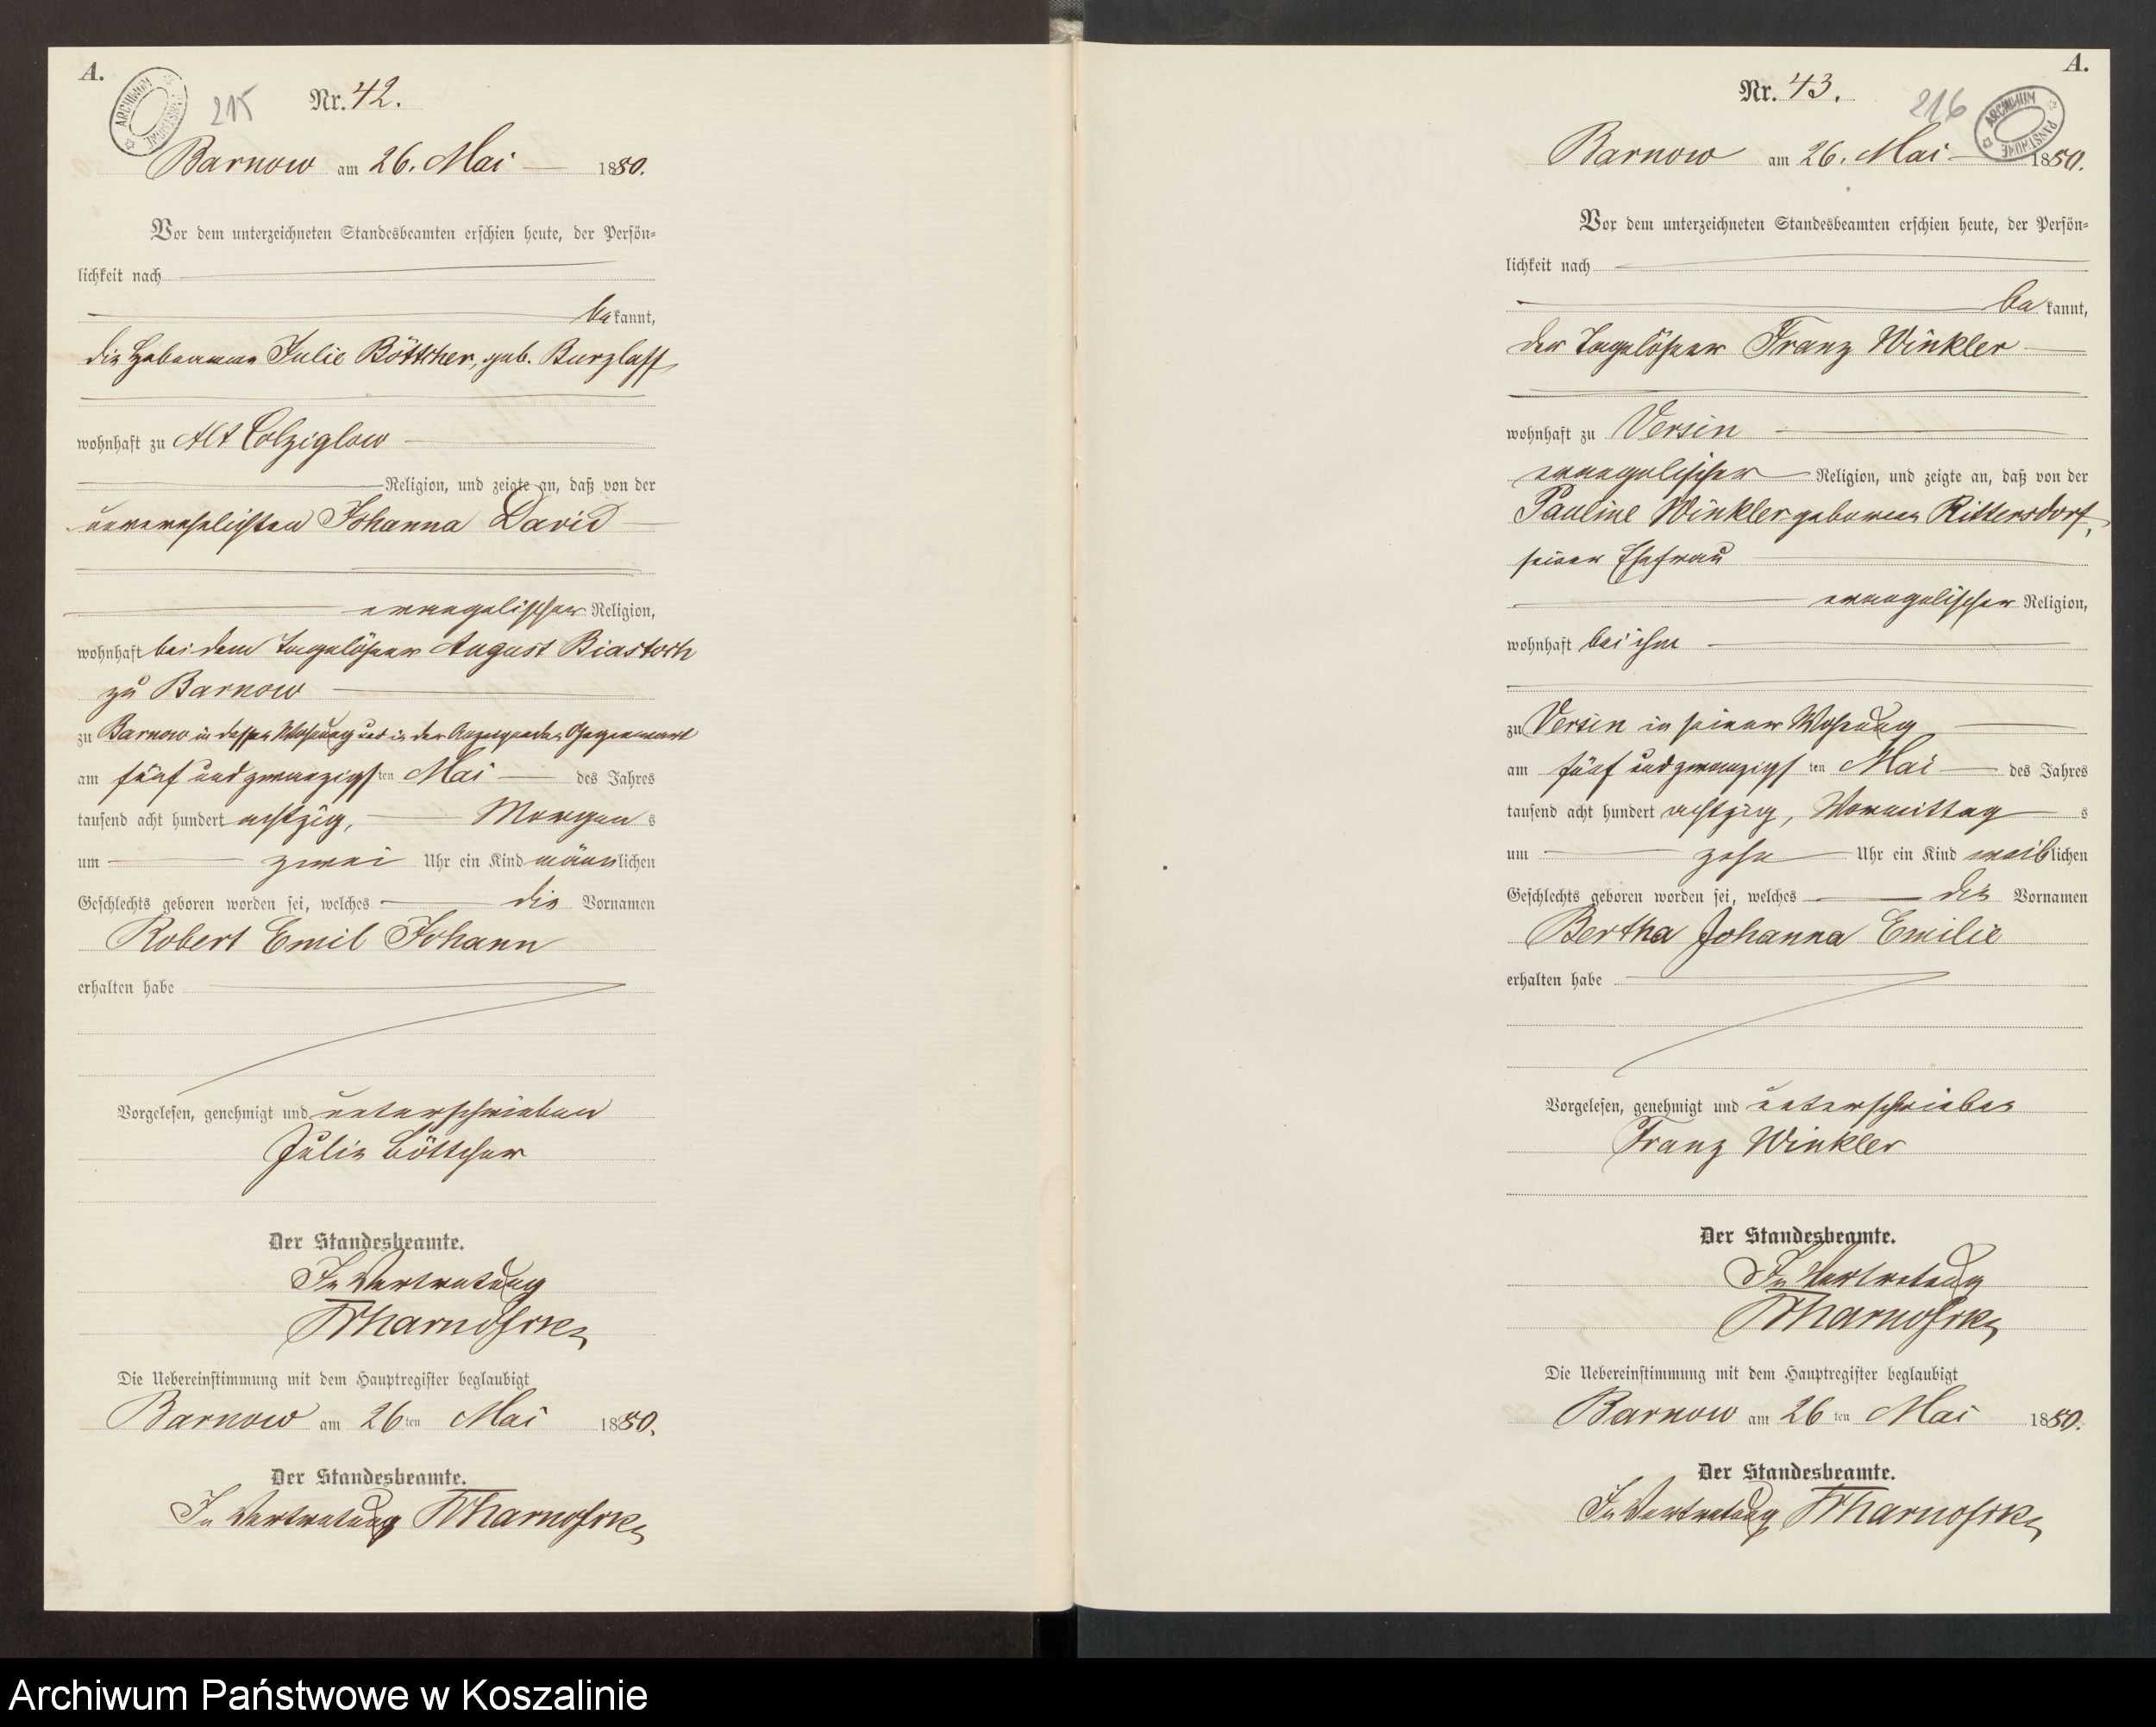 A.
ARCHIWUM PAŃSTWOWE
215
Nr. 42.
Barnow am 26. Mai 1880.
Vor dem unterzeichneten Standesbeamten erschien heute, der Persön-
lichkeit nach
bekannt,
die Hebamme Julie Böttcher, geb. Burzlaff,
wohnhaft zu Alt Colziglow
Religion, und zeigte an, daß von der
unverehelichten Johanna David
evangelischer Religion,
wohnhaft bei dem Tagelöhner August Biastoch
zu Barnow
zu Barnow in dessen Wohnung und in der Anzeigenden Gegenwart
am fünf und zwanzigsten Mai des Jahres
tausend acht hundert achtzig, Morgens
um zwei Uhr ein Kind männlichen
Geschlechts geboren worden sei, welches die Vornamen
Robert Emil Johann
erhalten habe
Vorgelesen, genehmigt und unterschrieben
Julie Böttcher
Der Standesbeamte.
In Vertretung
Die Uebereinstimmung mit dem Hauptregister beglaubigt
Barnow am 26ten Mai 1880.
Der Standesbeamte.
In Vertretung
A.
ARCHIWUM PAŃSTWOWE
216
Nr. 43.
Barnow am 26. Mai 1880.
Vor dem unterzeichneten Standesbeamten erschien heute, der Persön-
lichkeit nach
bekannt,
der Tagelöhner Franz Winkler
wohnhaft zu Versin
evangelischer Religion, und zeigte an, daß von der
Pauline Winkler geborene Rittersdorf,
seiner Ehefrau
evangelischer Religion,
wohnhaft bei ihm
zu Versin in seiner Wohnung
am fünf und zwanzigsten Mai des Jahres
tausend acht hundert achtzig, Vormittags
um zehn Uhr ein Kind weiblichen
Geschlechts geboren worden sei, welches die Vornamen
Bertha Johanna Emilie
erhalten habe
Vorgelesen, genehmigt und unterschrieben
Franz Winkler
Der Standesbeamte.
In Vertretung
Die Uebereinstimmung mit dem Hauptregister beglaubigt
Barnow am 26ten Mai 1880.
Der Standesbeamte.
In Vertretung
Archiwum Państwowe w Koszalinie